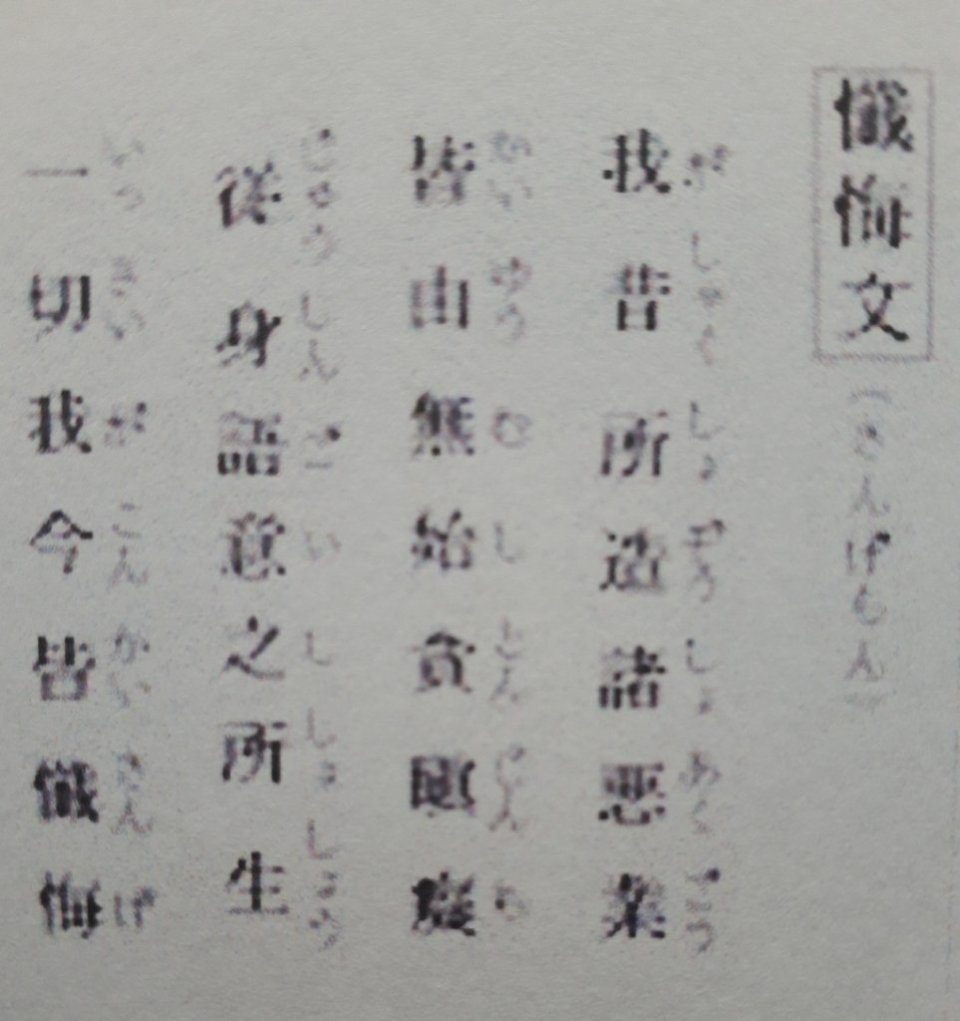 懺悔文（さんげもん）
我昔所造諸悪業
がしゃくしょぞうしょあくごう
皆由無始貪瞋癡
かいゆうむしとんじんち
従身語意之所生
じゅうしんごいししょしょう
一切我今皆懺悔
いっさいがこんかいさんげ